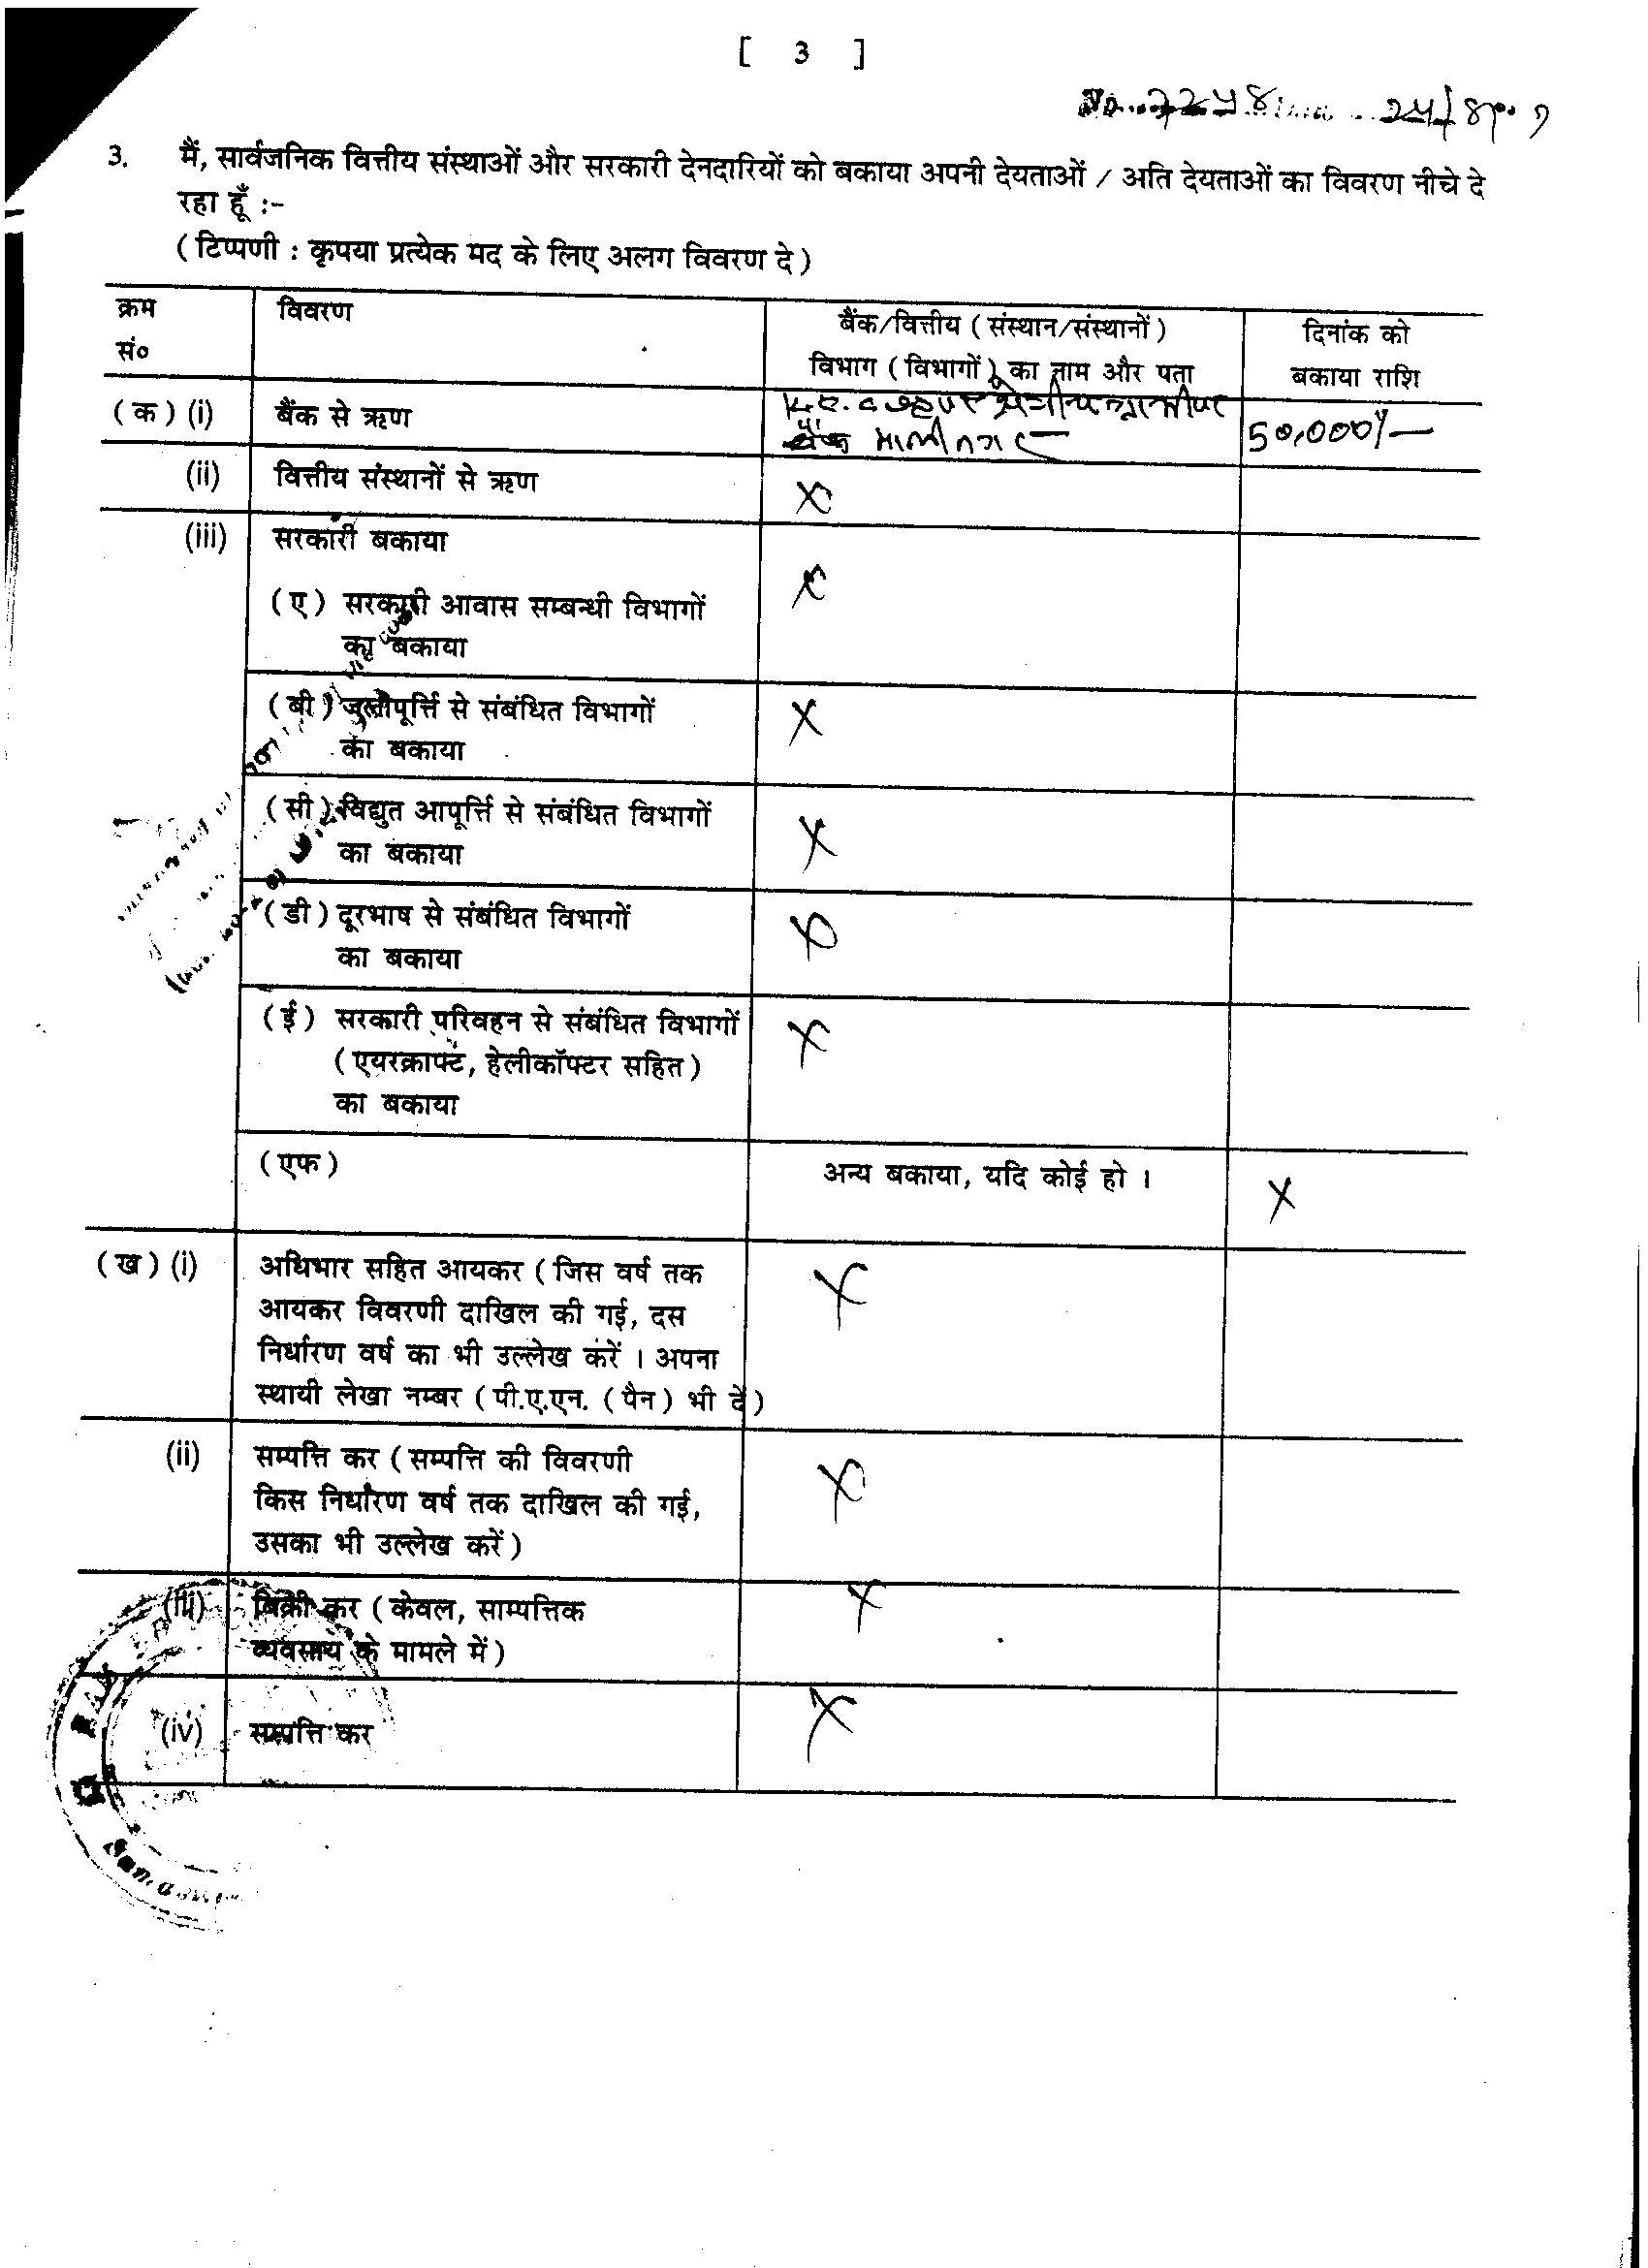 [ 3 ]
3. मैं, सार्वजनिक वित्तीय संस्थाओं और सरकारी देनदारियों को बकाया अपनी देयताओं / अति देयताओं का विवरण नीचे दे
रहा हूँ :-
( टिप्पणी : कृपया प्रत्येक मद के लिए अलग विवरण दे )
क्रम
सं०
विवरण
बैंक/वित्तीय ( संस्थान/संस्थानों )
विभाग ( विभागों ) का नाम और पता
दिनांक को
बकाया राशि
( क ) (i) बैंक से ऋण
क्षेत्रीय ग्रामीण
बैंक
50,000/-
(ii) वित्तीय संस्थानों से ऋण X
(iii) सरकारी बकाया
( ए ) सरकारी आवास सम्बन्धी विभागों X
का बकाया
( बी ) जलापूर्त्ति से संबंधित विभागों X
का बकाया
( सी ) विद्युत आपूर्त्ति से संबंधित विभागों X
का बकाया
( डी ) दूरभाष से संबंधित विभागों X
का बकाया
( ई ) सरकारी परिवहन से संबंधित विभागों X
( एयरक्राफ्ट, हेलीकॉफ्टर सहित )
का बकाया
( एफ ) अन्य बकाया, यदि कोई हो । X
( ख ) (i) अधिभार सहित आयकर ( जिस वर्ष तक X
आयकर विवरणी दाखिल की गई, दस
निर्धारण वर्ष का भी उल्लेख करें । अपना
स्थायी लेखा नम्बर ( पी.ए.एन. ( पैन ) भी दें )
(ii) सम्पत्ति कर ( सम्पत्ति की विवरणी X
किस निर्धारण वर्ष तक दाखिल की गई,
उसका भी उल्लेख करें )
(iii) बिक्री कर ( केवल, साम्पत्तिक X
व्यवसाय के मामले में )
(iv) सम्पत्ति कर X